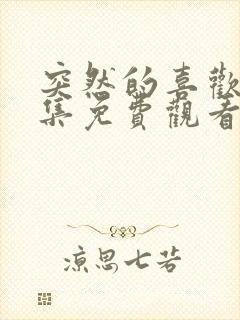 突然的喜歡
集免費觀看
涼思七若